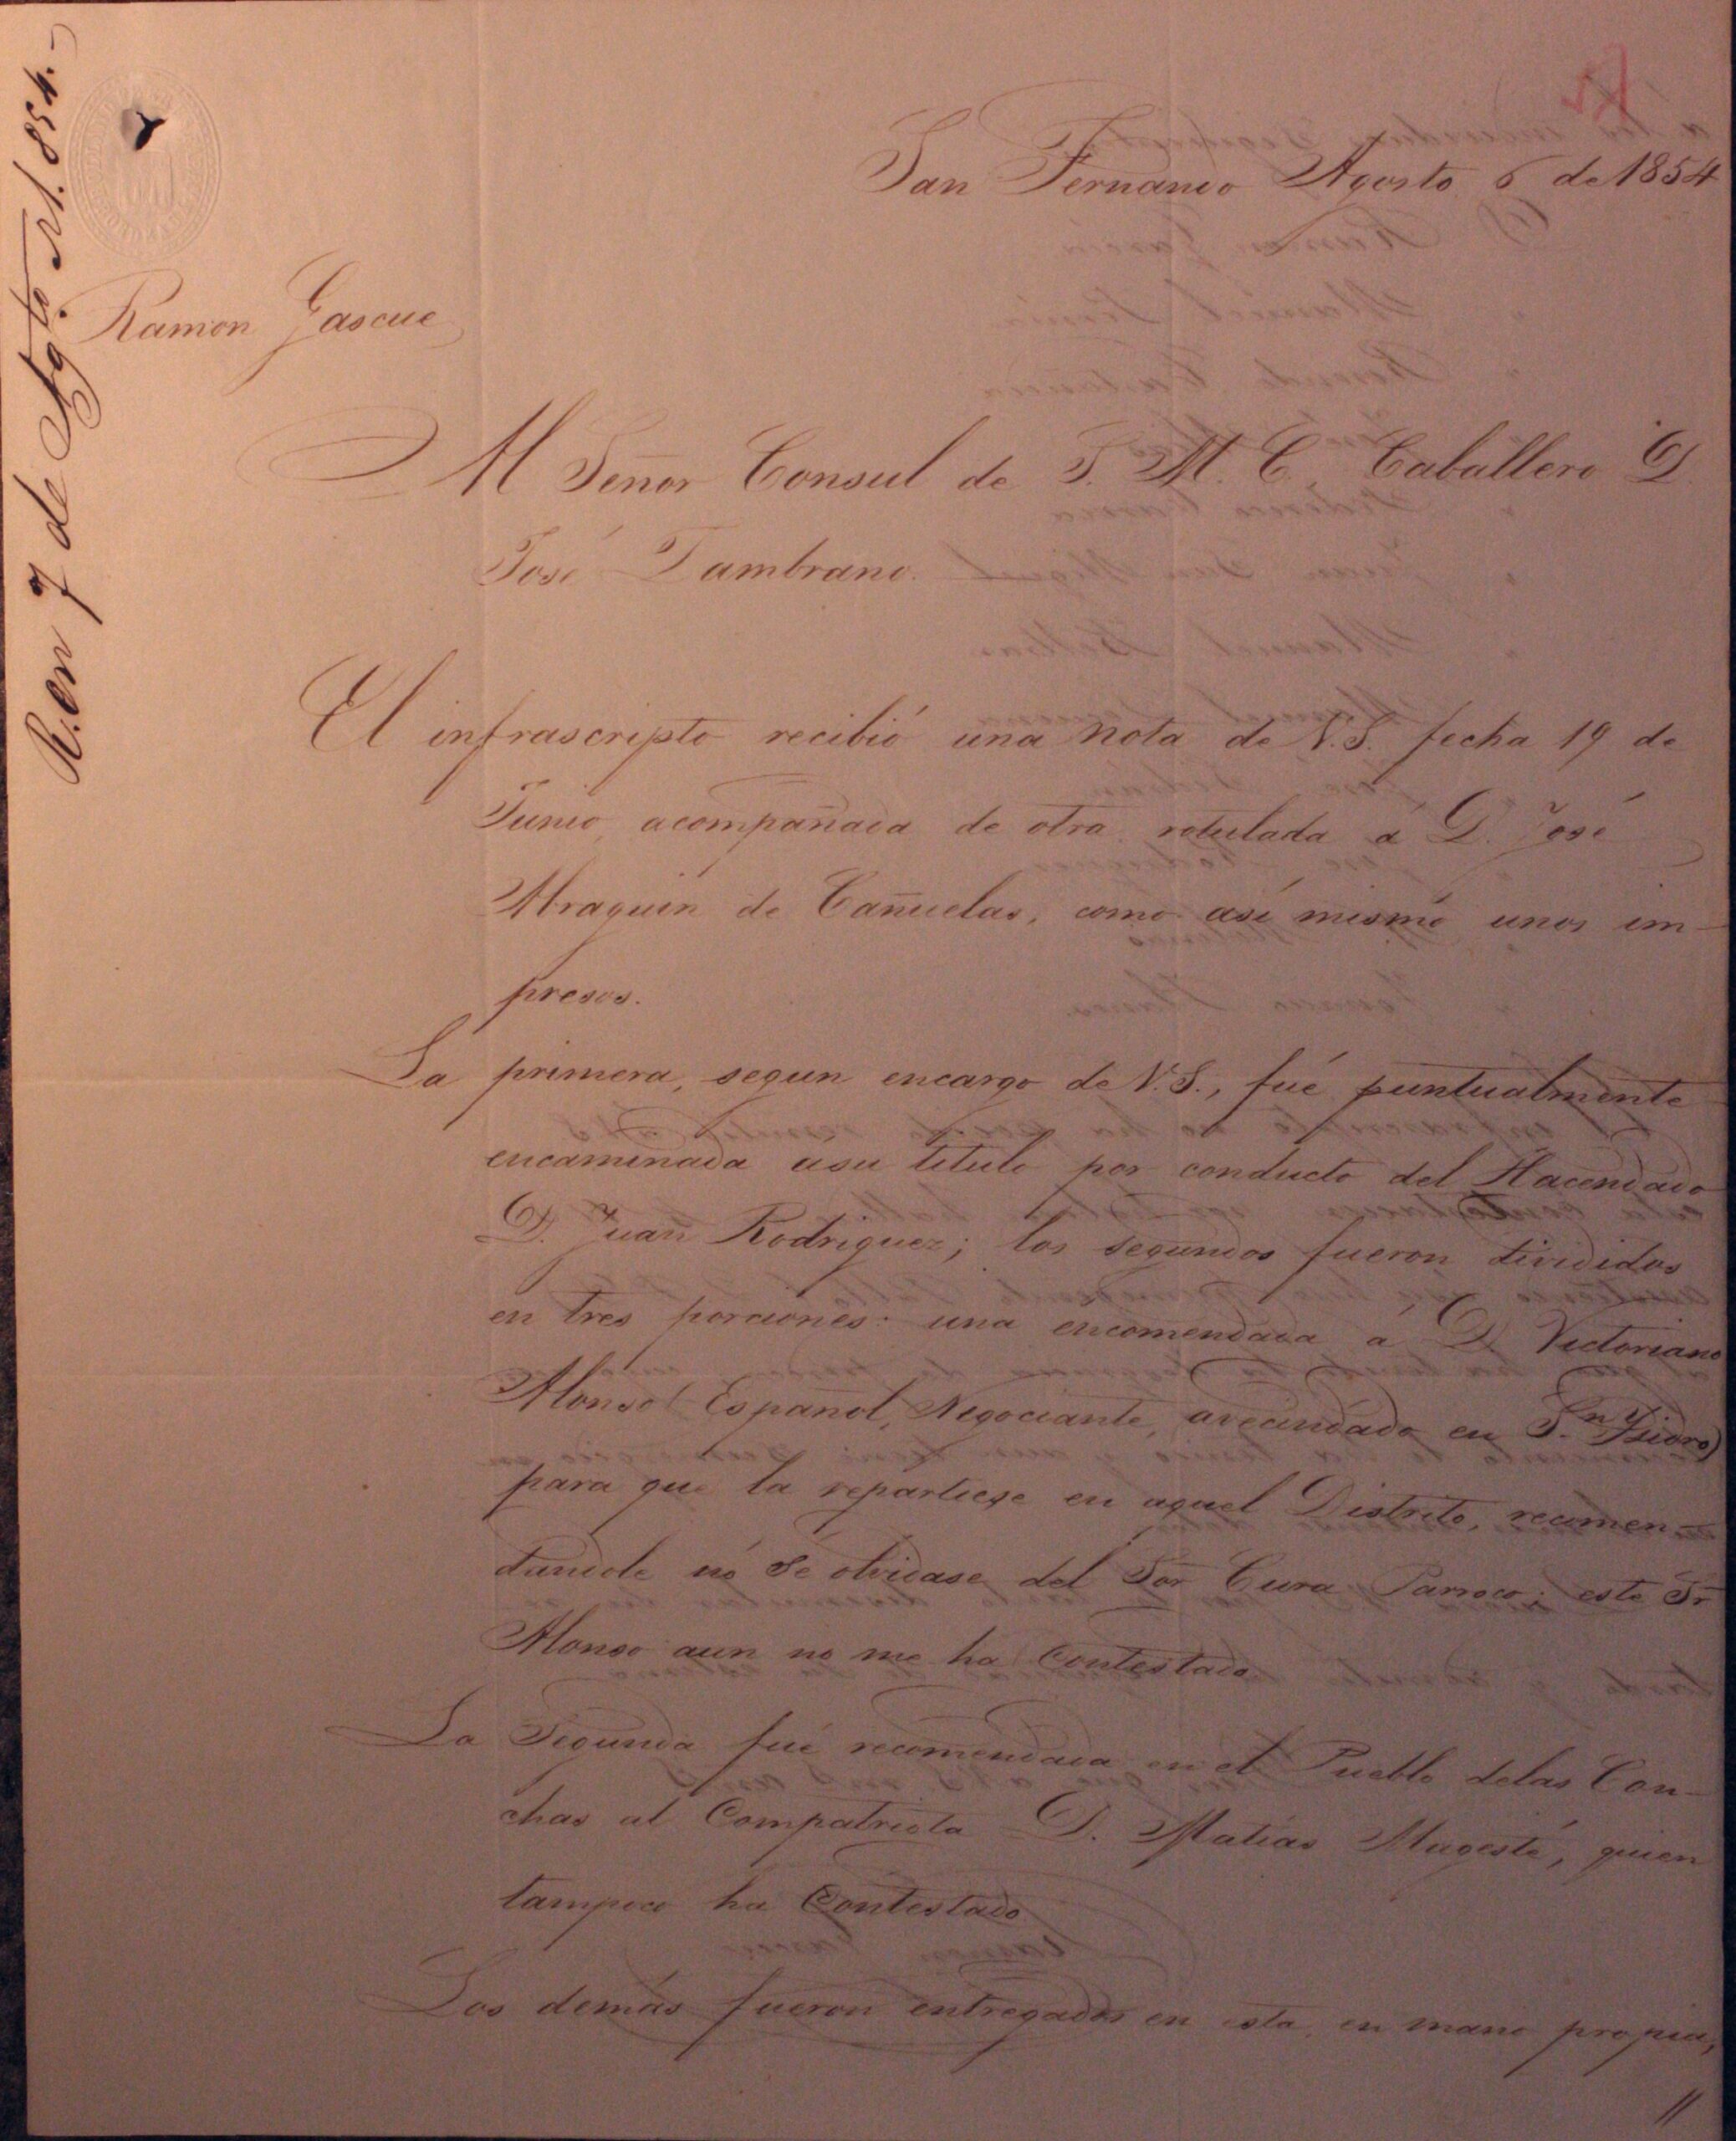 R. en 7 de Agto. 854.
San Fernando Agosto 6 de 1854
Ramon Gascue
Al Señor Consul de S. M. C. Caballero D.
José Zambrano.
El infrascripto recibió una nota de V.S. fecha 19 de
Junio, acompañada de otra rotulada á D. José
Alraguin de Cañuelas, como así mismo unos im-
presos.
La primera, segun encargo de V.S., fué puntualmente
encaminada asu titulo por conducto del Hacendado
D. Juan Rodriguez; los segundos fueron divididos
en tres porciones: una encomendada á D. Victoriano
Alonso (Español, Negociante, avecindado en Sn. Ysidro)
para que la repartiese en aquel Distrito, recomen-
dandole nó se olvidase del Sor Cura Parroco; este Sr
Alonso aun no me ha Contestado
La Segunda fué recomendada en el Pueblo delas Con-
chas al Compatriota D. Matías Mugesté, quien
tampoco ha Contestado
Los demás fueron entregados en esta, en mano propia,